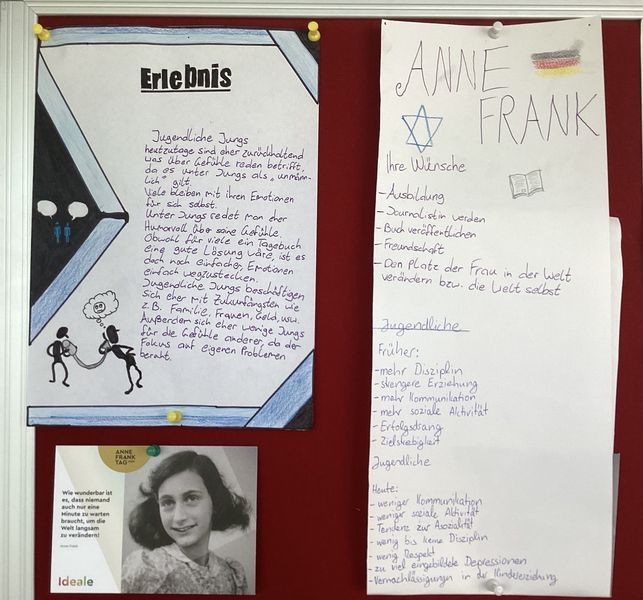 Erlebnis
Jugendliche Jungs
heutzutage sind eher zurückhaltend
was über Gefühle reden betrifft,
da es unter Jungs als „unmänn-
lich" gilt.
Viele bleiben mit ihren Emotionen
für sich selbst.
Unter Jungs redet man eher
Humorvoll über seine Gefühle.
Obwohl für viele ein Tagebuch
eine gute Lösung wäre, ist es
doch noch einfacher, Emotionen
einfach wegzustecken.
Jugendliche Jungs beschäftigen
sich eher mit Zukunfängsten wie
z.B. Familie, Frauen, Geld, usw.
Außerdem sich eher wenige Jungs
für die Gefühle anderer, da der
Fokus auf eigenen Problemen
beruht.
ANNE
FRANK
TAG
Wie wunderbar ist
es, dass niemand
auch nur eine
Minute zu warten
braucht, um die
Welt langsam
zu verändern!
Anne Frank
Ideale
ANNE
FRANK
Ihre Wünsche
- Ausbildung
- Journalistin werden
- Buch veröffentlichen
- Freundschaft
- Den Platz der Frau in der Welt
verändern bzw. die Welt selbst
Jugendliche
Früher:
- mehr Disziplin
- strengere Erziehung
- mehr Kommunikation
- mehr soziale Aktivität
- Erfolgsdrang
- Zielstrebigkeit
Jugendliche
Heute:
- weniger Kommunikation
- weniger soziale Aktivität
- Tendenz zur Asozialität
- wenig bis keine Disziplin
- wenig Respekt
- zu viel eingebildete Depressionen
- Vernachlässigungen in der Kindererziehung